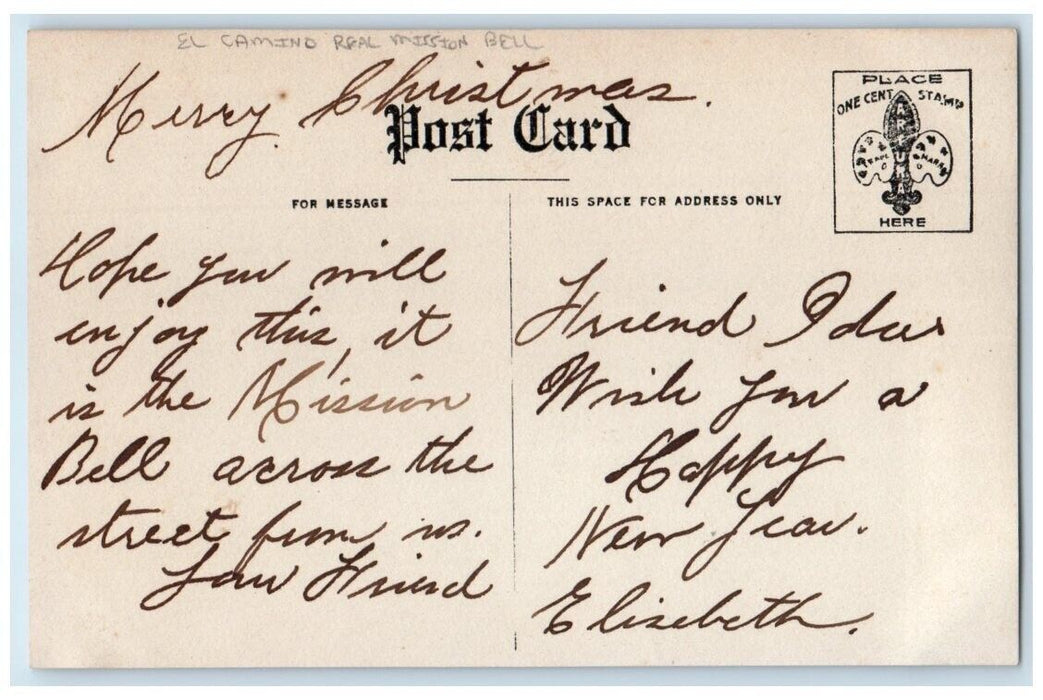 EL CAMINO REAL MISSION BELL
Merry Christmas.
Post Card
PLACE
ONE CENT STAMP
HERE
FOR MESSAGE
THIS SPACE FOR ADDRESS ONLY
Hope you will
enjoy this, it
is the Mission
Bell across the
street from us.
Your Friend
Friend Ida
Wish you a
Happy
New Year.
Elizebeth.